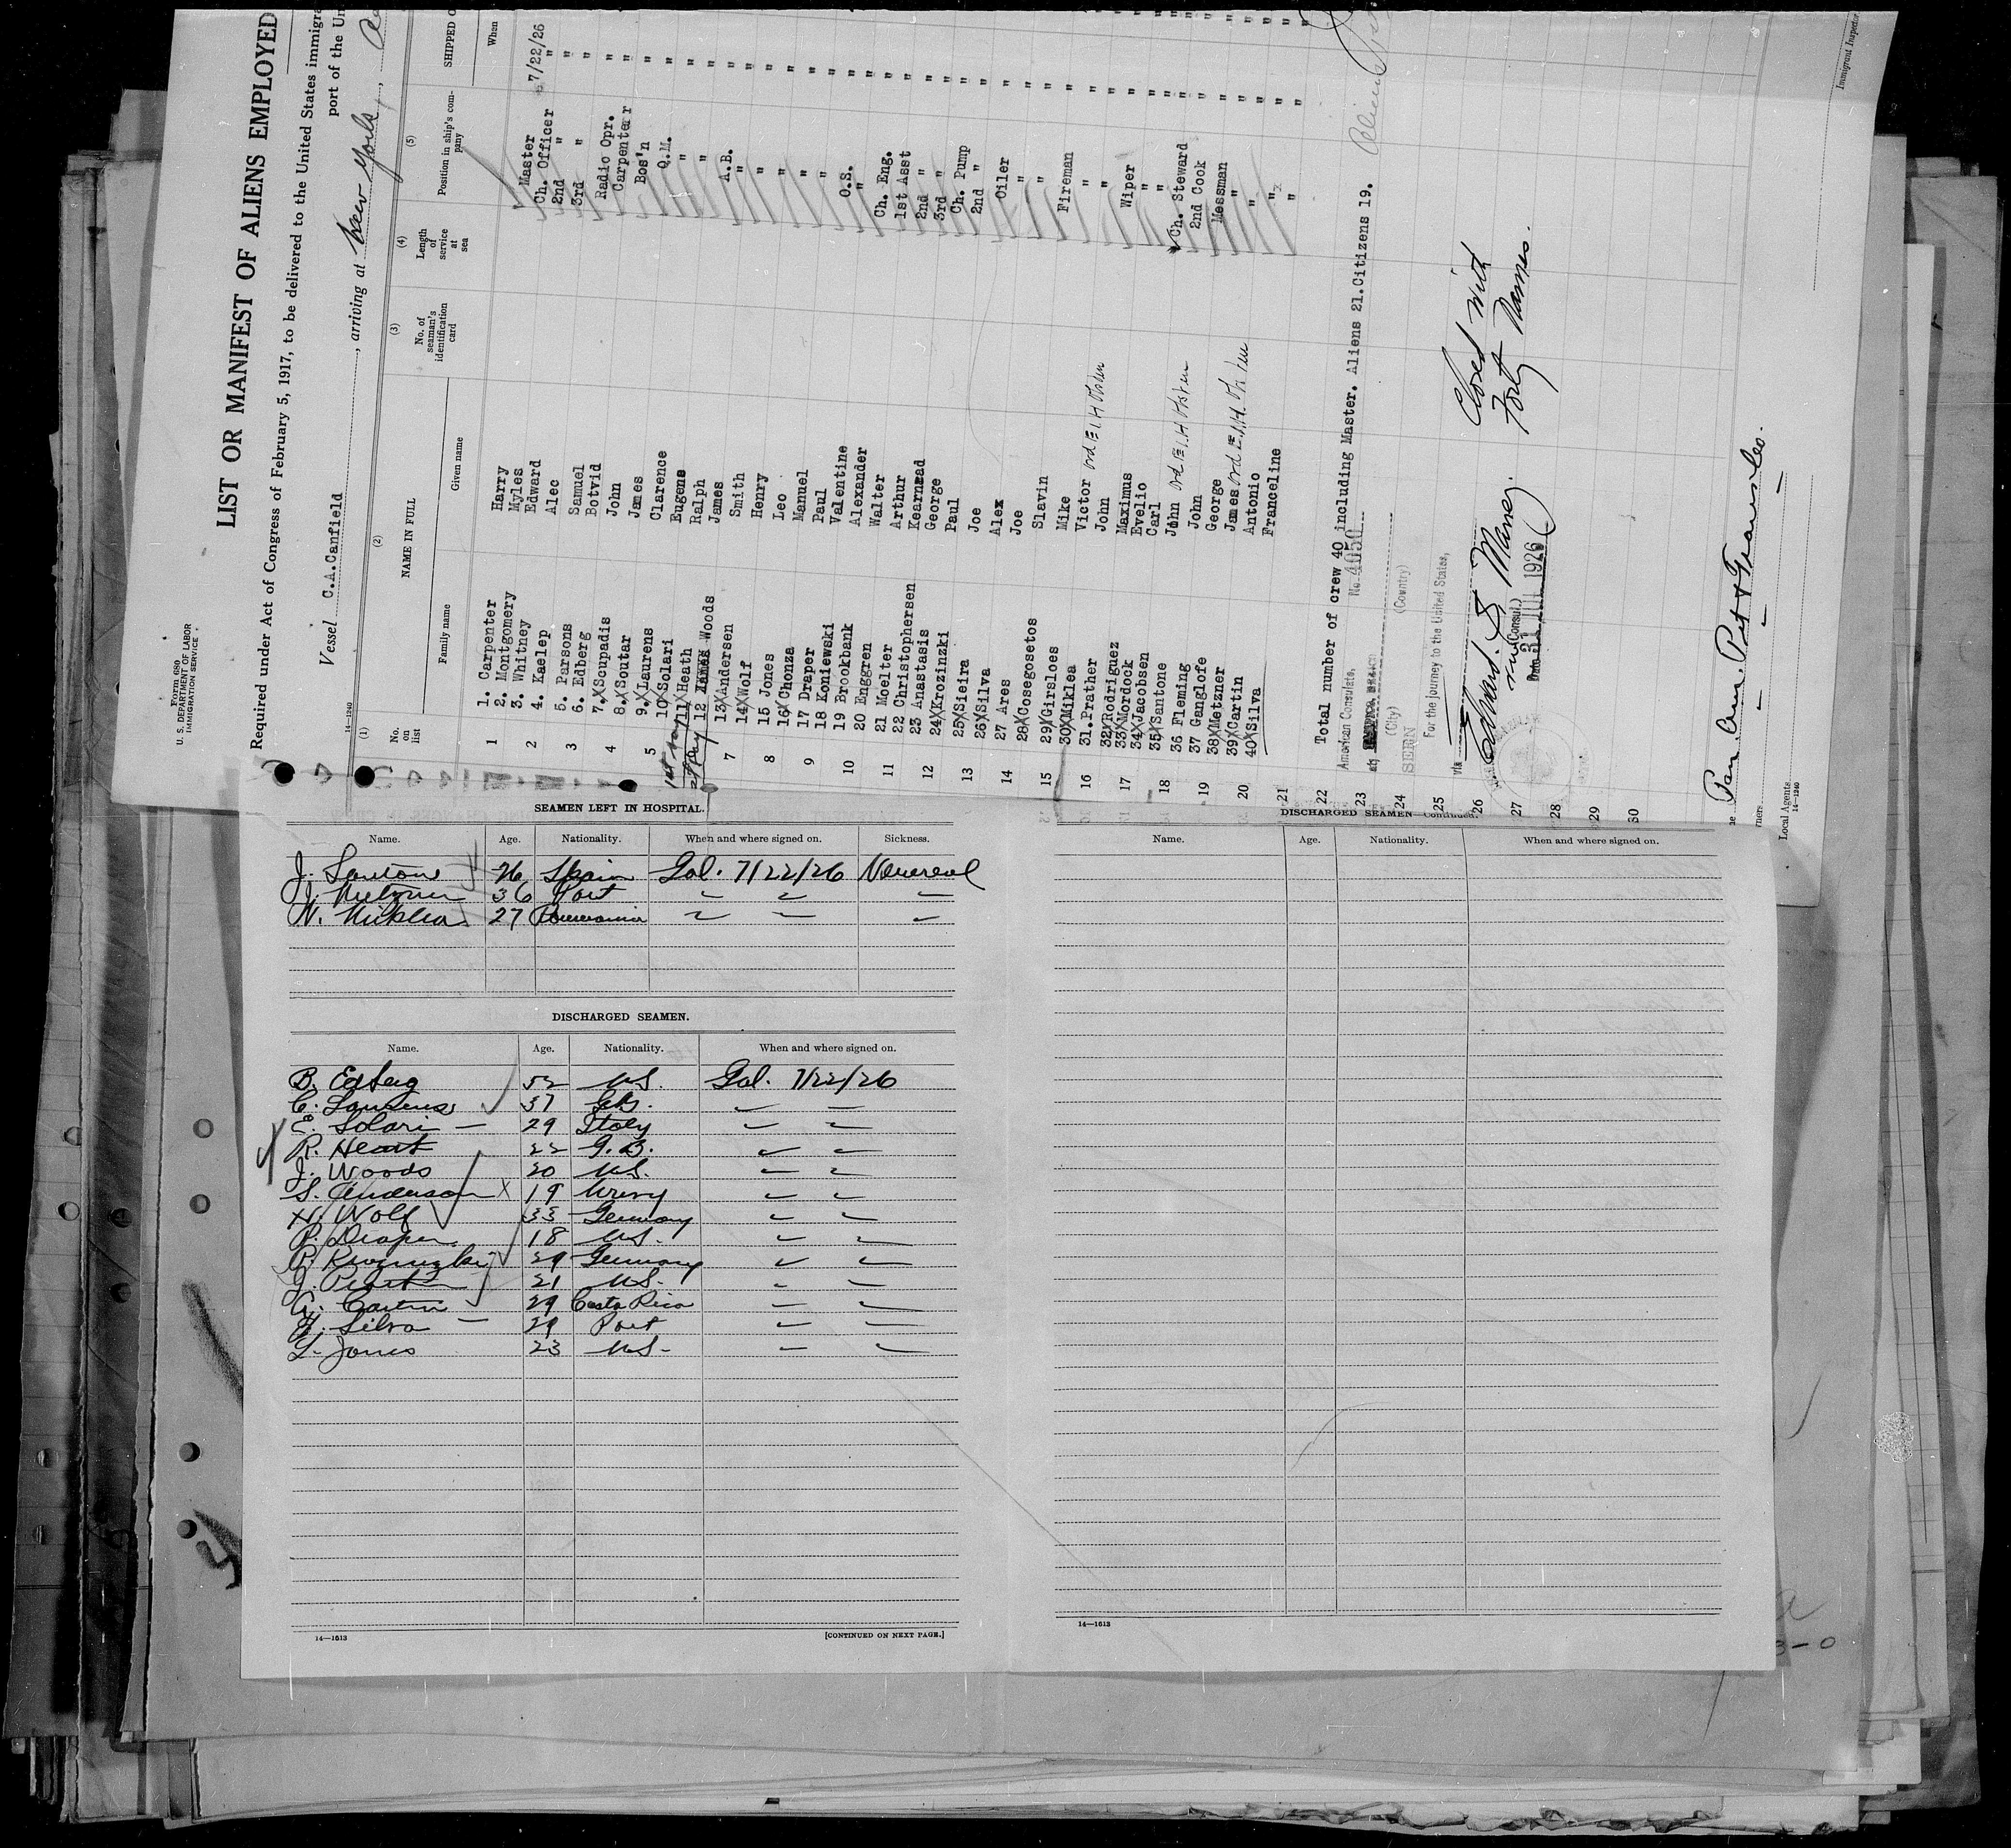 Form 680
U. S. DEPARTMENT OF LABOR
IMMIGRATION SERVICE
LIST OR MANIFEST OF ALIENS EMPLOYED
Required under Act of Congress of February 5, 1917, to be delivered to the United States immigra
port of the Un
Vessel C.A.Canfield, arriving at New York,
14—1240
(1) (2) (3) (4) (5)
No. on list
NAME IN FULL
Family name Given name
No. of seaman's identification card
Length of service at sea
Position in ship's company
SHIPPED O
When
1 1. Carpenter Harry Master 7/22/26
2. Montgomery Myles Ch. Officer "
3. Whitney Edward 2nd " "
2 4. Kaelep Alec 3rd " "
3 5. Parsons Samuel Radio Opr. "
6. Edberg Botvid Carpenter "
4 7.X Scupadis John Bos'n "
8.X Soutar James Q.M. "
5 9.X Laurens Clarence " "
10X Solari Eugene " "
11X Heath Ralph A.B. "
12 Woods James " "
7 13X Andersen Smith " "
14X Wolf Henry " "
8 15 Jones Leo " "
16X Chonza Manuel " "
9 17 Draper Paul O.S. "
18 Koniewski Valentine " "
10 19 Brookbank Alexander Ch. Eng. "
20 Enggren Walter 1st Asst "
11 21 Moelter Arthur 2nd " "
22 Christophersen Kearnead 3rd " "
12 23 Anastasis George Ch. Pump "
24X Krozinzki Paul 2nd " "
13 25X Sieira Joe Oiler "
26X Silva Alex " "
14 27 Ares Joe " "
28X Cosegosetos Slavin Fireman "
15 29X Girsloes Mike " "
30X Miklea Victor " "
16 31. Prather John Wiper "
32X Rodriguez Maximus " "
17 33X Mordock Evelio " "
34X Jacobsen Carl Ch. Steward "
18 35X Santone John 2nd Cook "
36 Fleming John Messman "
19 37 Ganglofe George " "
38X Metzner James " "
20 39X Cartin Antonio " "
40X Silva Franceline " "
21
22 Total number of crew 40 including Master. Aliens 21.Citizens 19.
23 American Consulate, No. 4050
24 (City) (Country)
SEEN
25 For the journey to the United States,
26 via
Edward S Maney.
27 Vice (Consul.)
Date 31 JUL 1926
28
29
30
Closed with
Forty Names.
Pan Am. Pet & Trans Co.
Local Agents
14—1240
Immigrant Inspector
SEAMEN LEFT IN HOSPITAL.
Name. Age. Nationality. When and where signed on. Sickness.
J. Santone 26 Spain Gal. 7/22/26 Venereal
J. Metzner 36 Port " " "
V. Miklea 27 Roumania " " "
DISCHARGED SEAMEN.
Name. Age. Nationality. When and where signed on.
B. Edberg 52 U.S. Gal. 7/22/26
C. Laurens 37 G.B. " "
E. Solari 29 Italy " "
R. Heart 22 G.B. " "
J. Woods 20 U.S. " "
S. Anderson X 19 Norwy " "
H. Wolf 33 Germany " "
P. Draper 18 U.S. " "
P. Krozinzki 29 Germany " "
J. Prather 21 U.S. " "
A. Cartin 29 Costa Rica " "
F. Silva 29 Port " "
L. Jones 23 U.S. " "
14—1513
[CONTINUED ON NEXT PAGE.]
DISCHARGED SEAMEN—Continued.
Name. Age. Nationality. When and where signed on.
14—1513